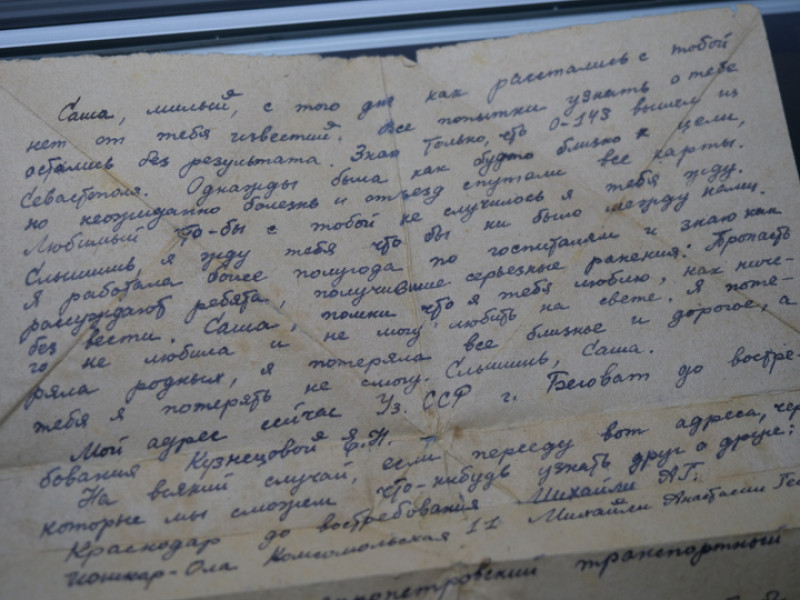 Саша, милый, с того дня как рассталась с тобой
нет от тебя известия. Все попытки узнать о тебе
остались без результата. Знаю только, что 0-143 вышел из
Севастополя. Однажды была как будто близко к цели,
но неожиданно болезнь и отъезд спутали все карты.
Любимый что-бы с тобой не случилось я тебя жду.
Слышишь, я жду тебя что бы ни было между нами.
Я работала более полугода по госпиталям и знаю как
рассуждают ребята, получившие серьезные ранения: Пропасть
без вести. Саша, помни что я тебя люблю, как ниче-
го не любила и не могу любить на свете. Я поте-
ряла родных, я потеряла все близкое и дорогое, а
тебя я потерять не смогу. Слышишь, Саша.
Мой адрес сейчас Уз. ССР г. Беговат до востре-
бования Кузнецовой Я.
На всякий случай, если перееду вот адреса, чер
которые мы сможем что-нибудь узнать друг о друге:
Краснодар до востребования Михайли А.Г.
Йошкар-Ола Комсомольская 11 Михайли Анастасии Ге
непропетровский транспортный